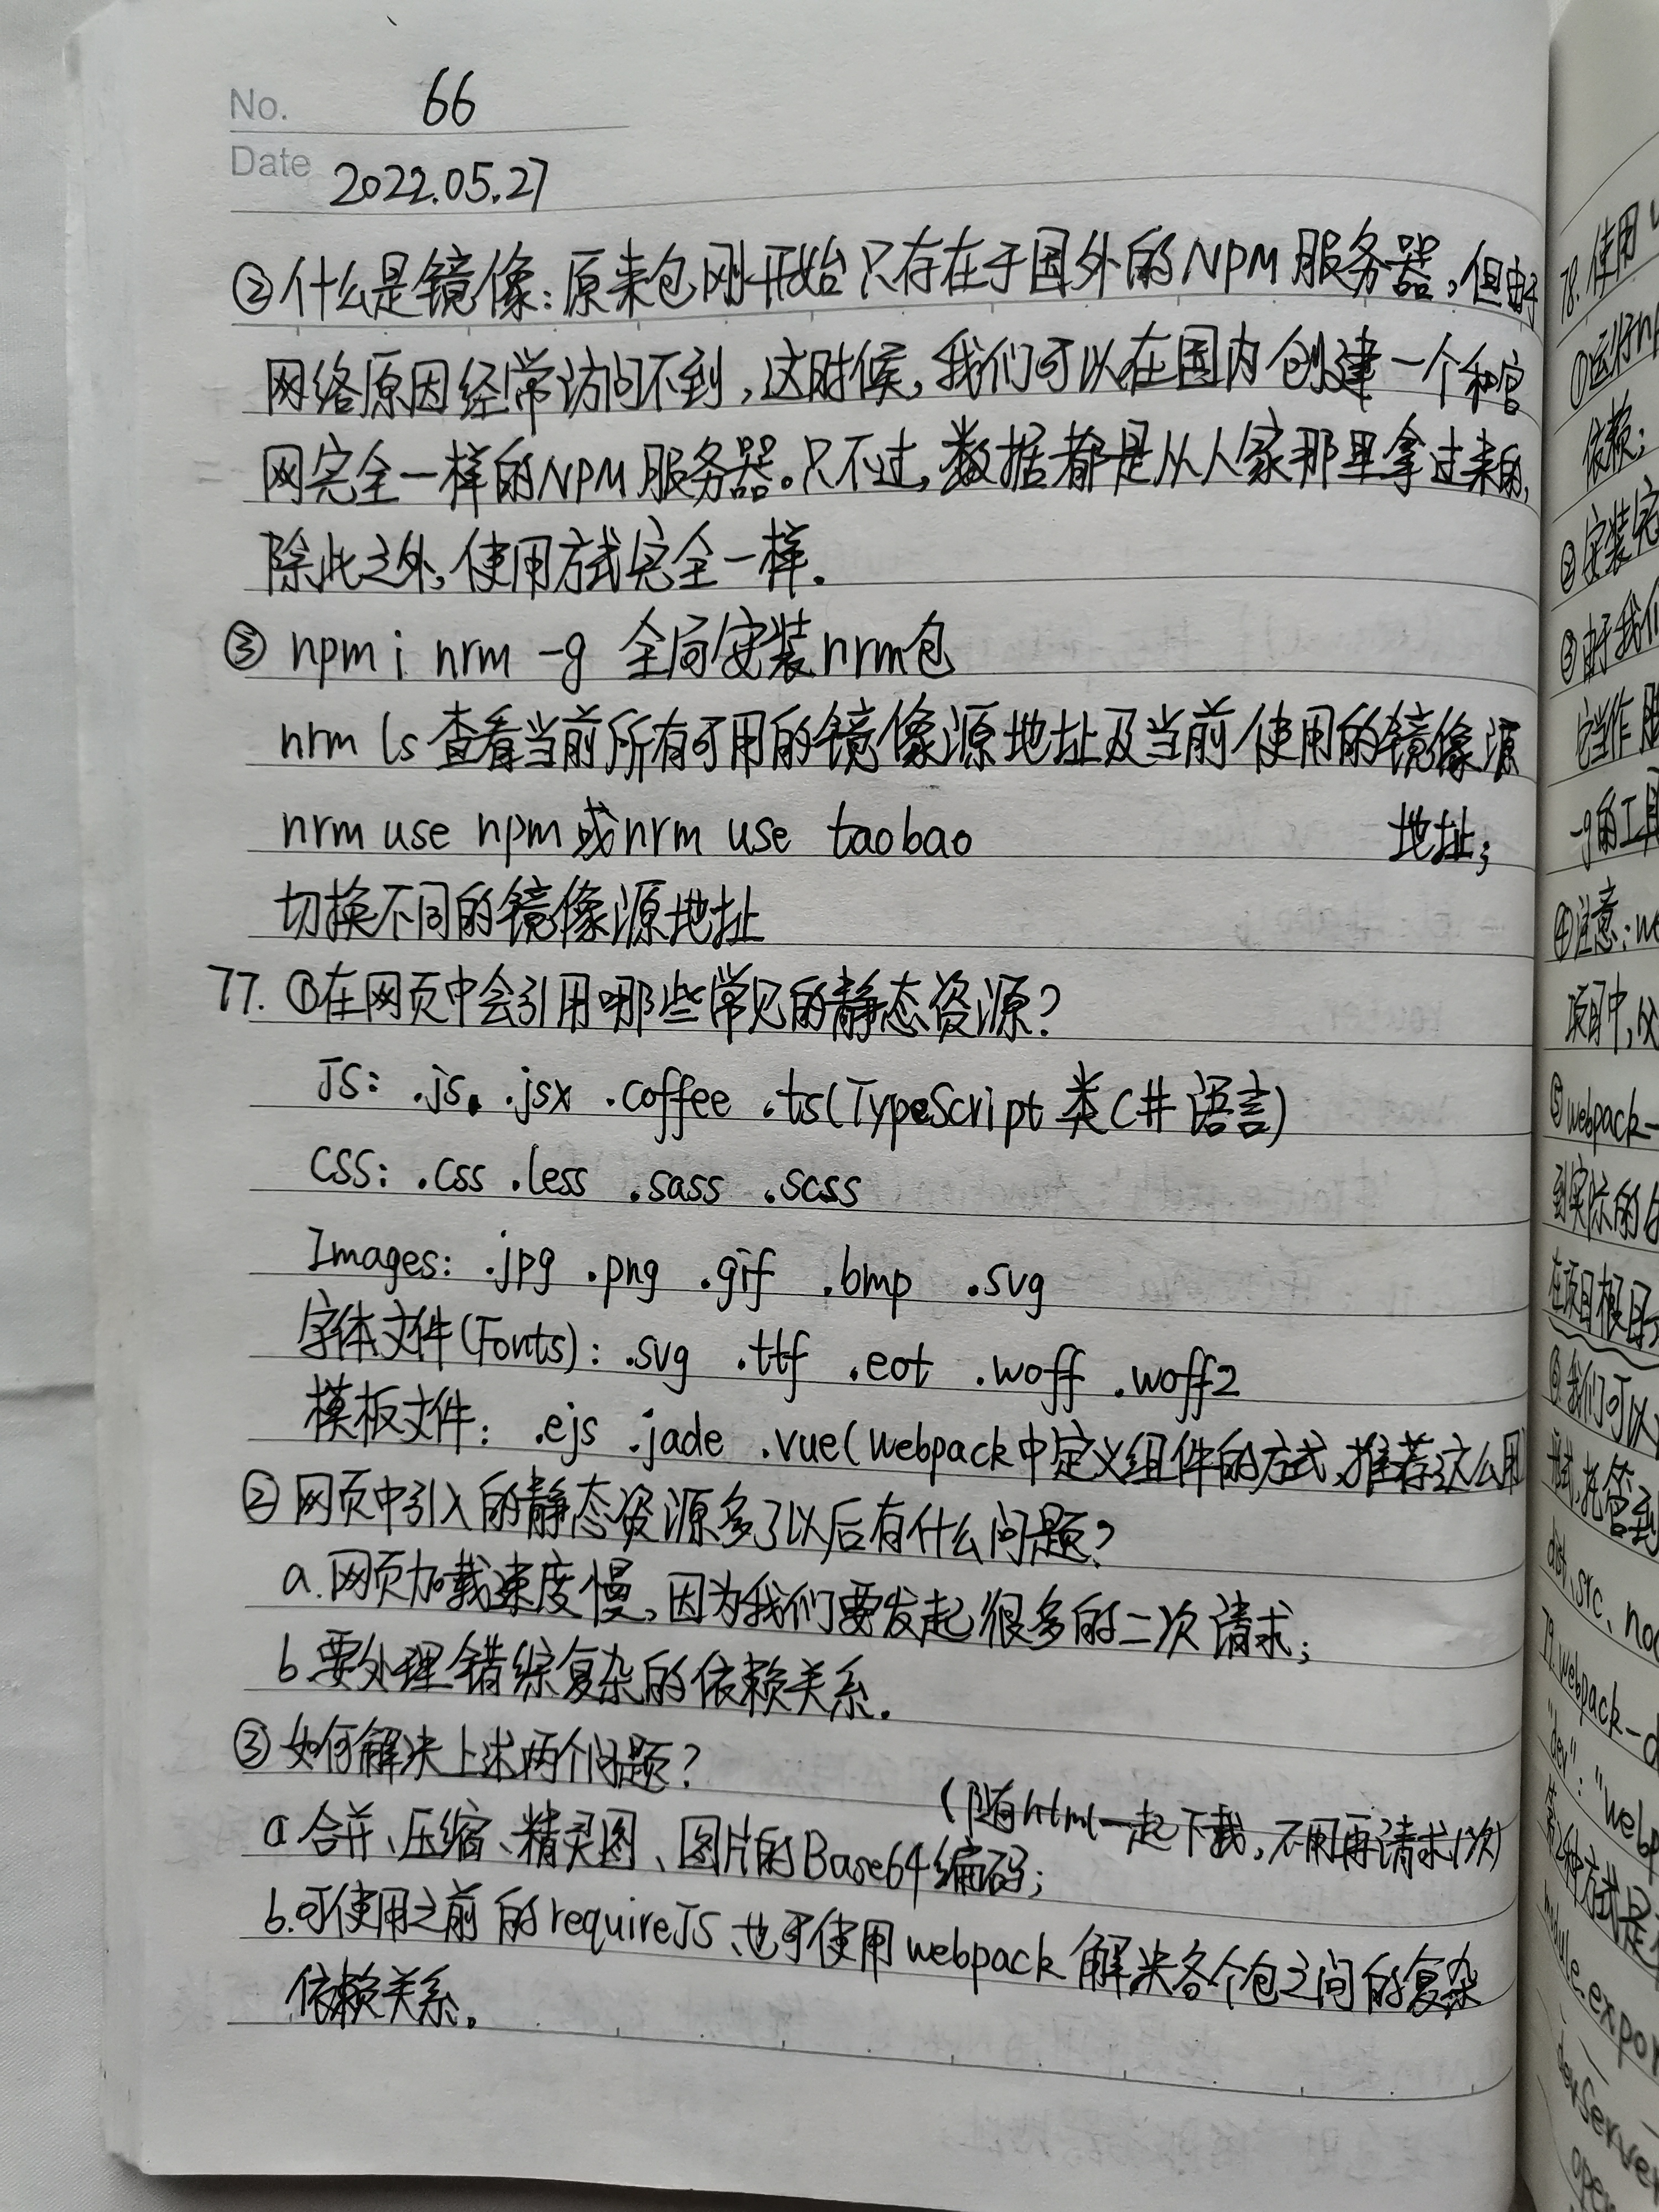 No. 66
Date 2022.05.27
②什么是镜像：原来包刚开始只存在于国外的NPM服务器，但由于
网络原因经常访问不到，这时候，我们可以在国内创建一个和官
网完全一样的NPM服务器。只不过，数据都是从人家那里拿过来的，
除此之外，使用方式完全一样．
③ npm i nrm -g 全局安装nrm包
nrm ls 查看当前所有可用的镜像源地址及当前使用的镜像源
地址；
nrm use npm或nrm use taobao
切换不同的镜像源地址
77. ①在网页中会引用哪些常见的静态资源？
JS： .js. .jsx .coffee .ts(TypeScript 类C#语言)
CSS： .css .less .sass .scss
Images： .jpg .png .gif .bmp .svg
字体文件(Fonts)： .svg .ttf .eot .woff .woff2
模板文件： .ejs .jade .vue(webpack中定义组件的方式，推荐这么用
②网页中引入的静态资源多了以后有什么问题？
a.网页加载速度慢，因为我们要发起很多的二次请求；
b.要处理错综复杂的依赖关系．
③如何解决上述两个问题？
(随html一起下载，不用再请求1次)
a.合并、压缩、精灵图、图片的Base64编码；
b.可使用之前的requireJS、也可使用webpack解决各个包之间的复杂
依赖关系。
78.使用
①运行n
依赖；
②安装完
③由于我们
-g的工具
④注意：we
项目中，
⑤webpack-
到实际的
在项目根目
⑥我们可以
形式，托管到
dist、src、no
79.webpack-d
"dev"："webp
module.expor
devServer
open